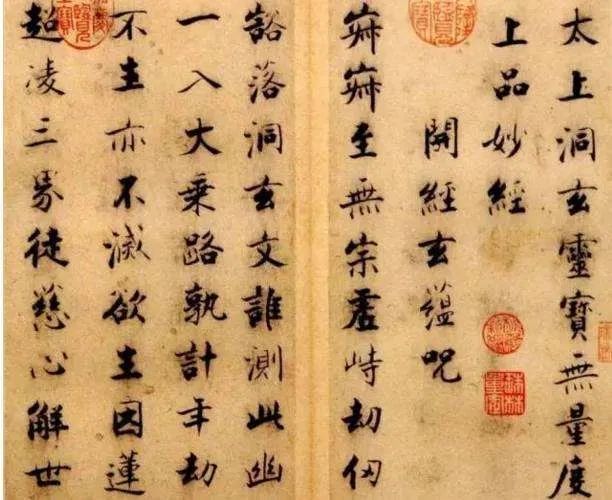 太上洞玄靈寶無量度
上品妙經
開經玄蘊呪
寂寂至無宗虛峙劫仞
豁落洞玄文誰測此幽
一入大乘路孰計年劫
不生亦不滅欲生因蓮
超凌三界徒慈心解世